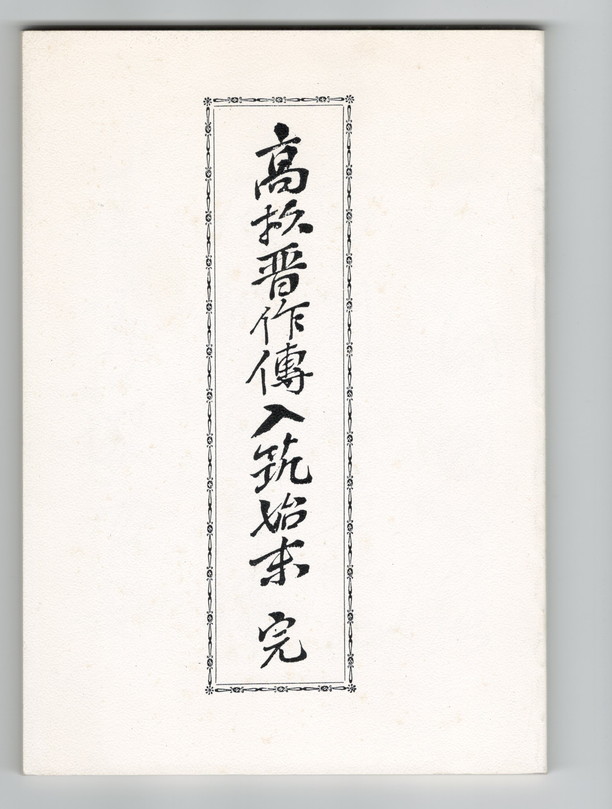 高杉晋作傳入筑始末 完